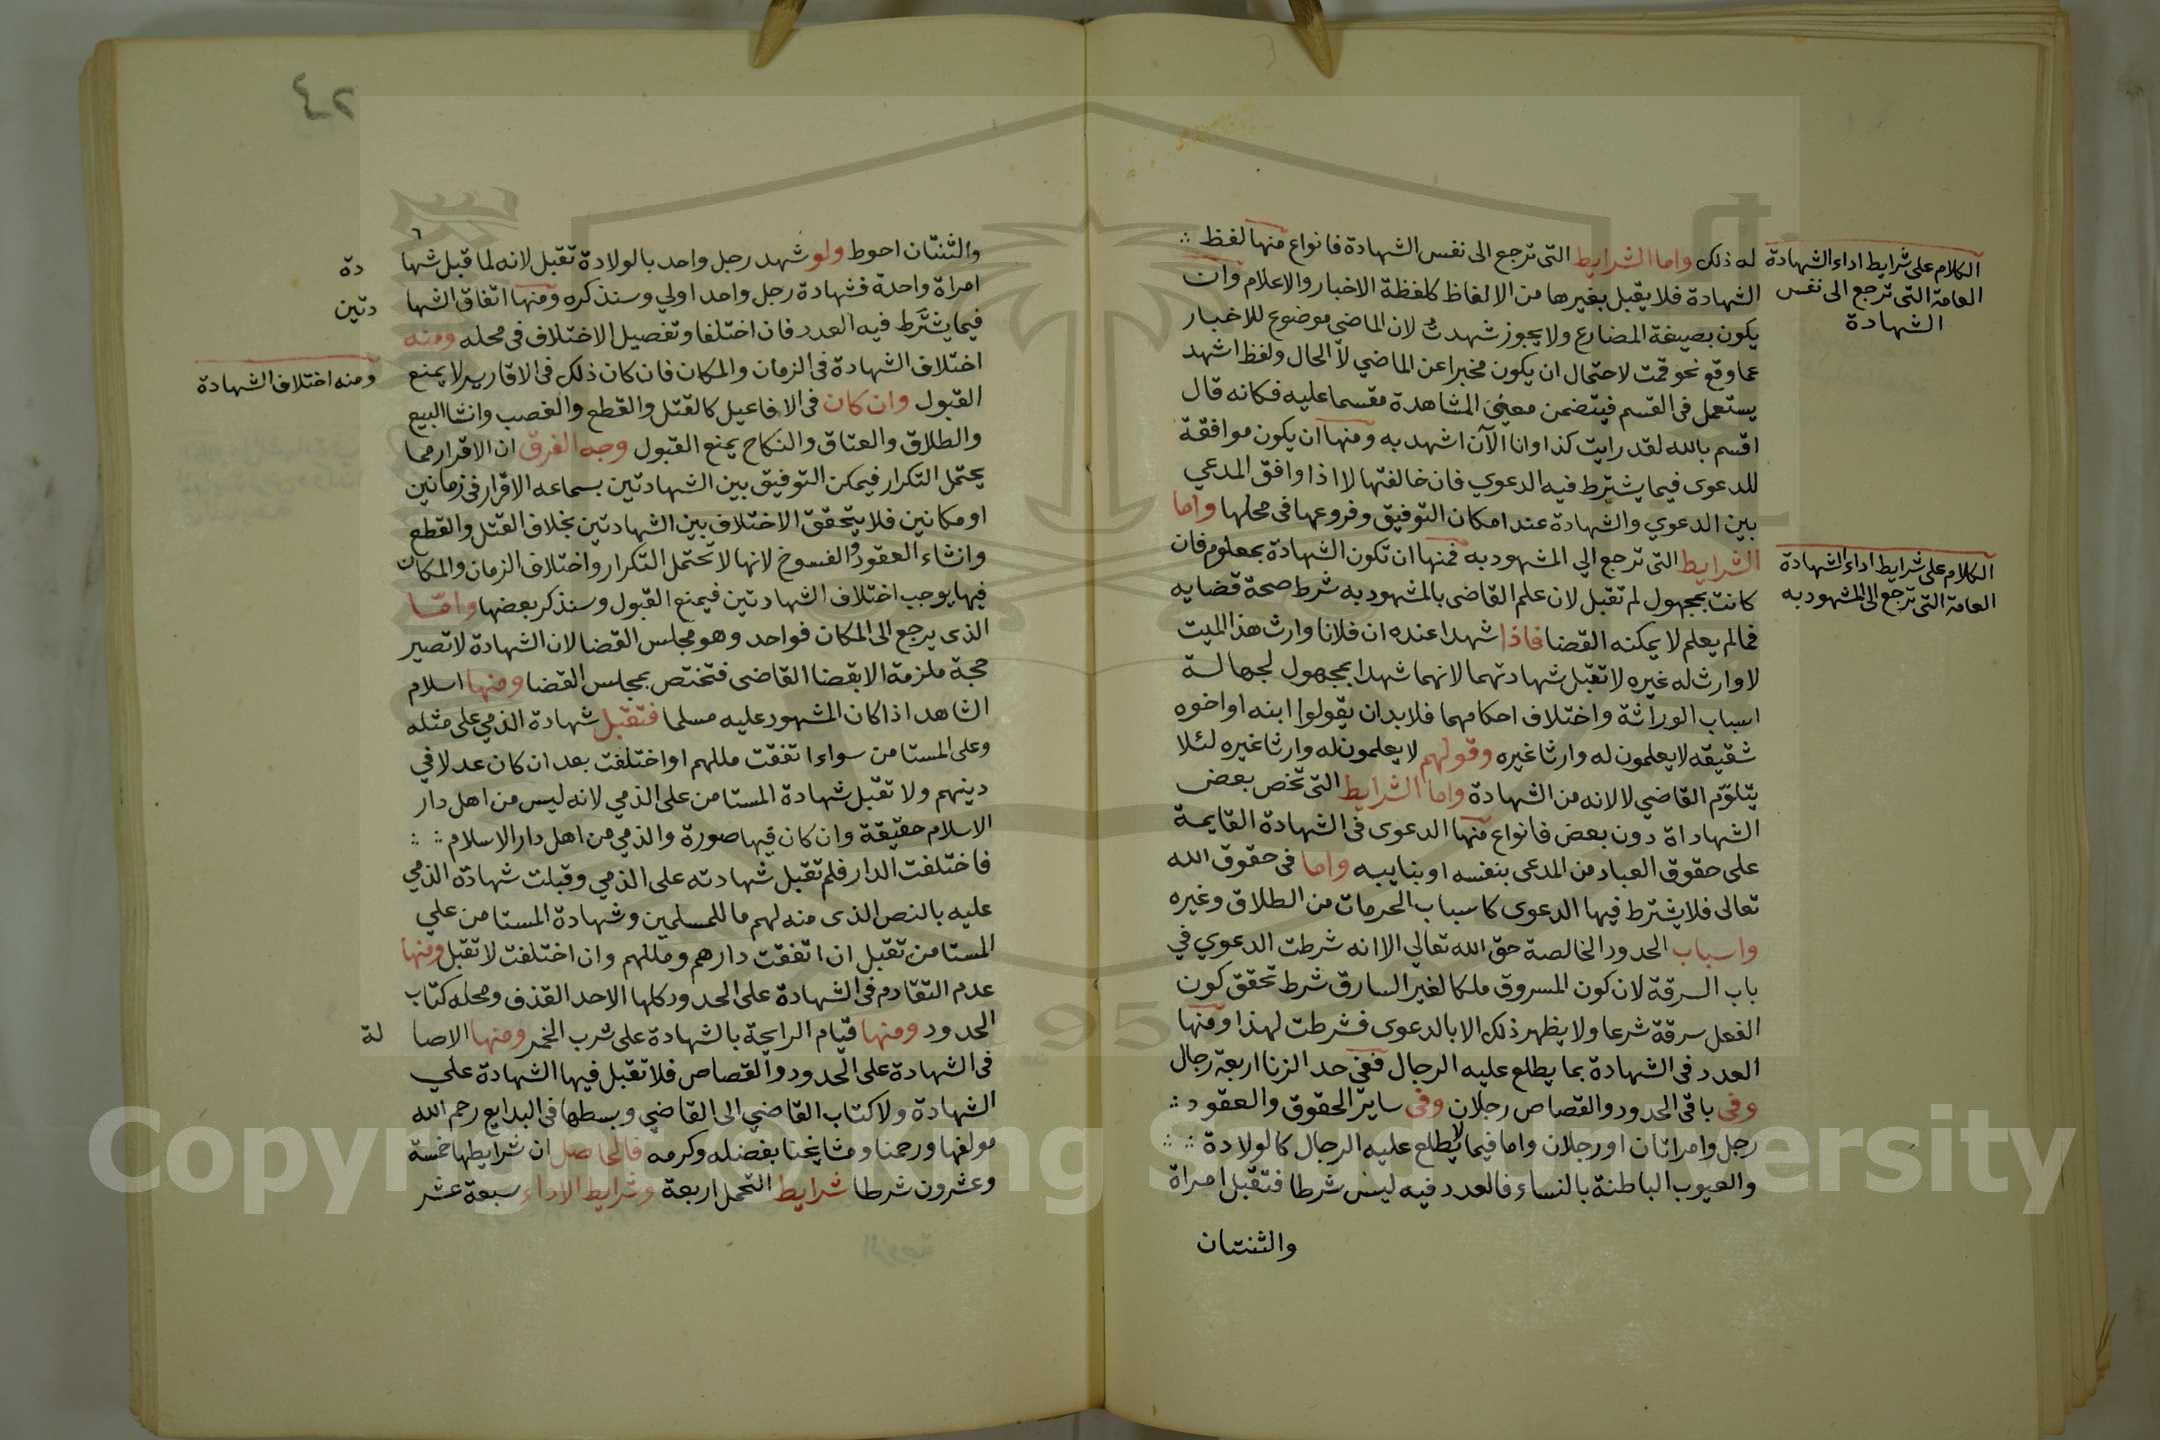 له ذلك واما الشرايط التى ترجع الى نفس الشهادة فانواع منها لفظ
الشهادة فلا يقبل بغيرها من الالفاظ كلفظة الاخبار والاعلام وان
يكون بصيغة المضارع ولا يجوز شهدت لان الماضي موضوع للاخبار
عما وقع نحو قمت لاحتمال ان يكون مخبرا عن الماضي لا الحال ولفظ اشهد
يستعمل فى القسم فيتضمن معنى المشاهدة مقسما عليه فكانه قال
اقسم بالله لقد رايت كذا وانا الآن اشهد به ومنها ان يكون موافقة
للدعوى فيما يشترط فيه الدعوي فان خالفتها لا اذا وافق المدعي
بين الدعوي والشهادة عند امكان التوفيق وفروعها فى محلها واما
الشرايط التى ترجع الي المشهود به فمنها ان تكون الشهادة بمعلوم فان
كانت بمجهول لم تقبل لان علم القاضى بالمشهود به شرط صحة قضايه
فمالم يعلم لا يمكنه القضا فاذا شهدا عنده ان فلانا وارث هذا الميت
لا وارث له غيره لا تقبل شهادتهما لانهما شهدا بمجهول لجهالة
اسباب الوراثة واختلاف احكامهما فلابد ان يقولوا ابنه او اخوه
شقيقه لا يعلمون له وارثا غيره وقولهم لا يعلمون له وارثا غيره لئلا
يتلوّم القاضي لا لانه من الشهادة واما الشرايط التى تخص بعض
الشهاداة دون بعض فانواع منها الدعوى فى الشهادة القايمة
على حقوق العباد من المدعى بنفسه او بنايبه واما فى حقوق الله
تعالى فلا يشترط فيها الدعوى كاسباب الحرمات من الطلاق وغيره
واسباب الحدود الخالصة حق الله تعالي الا انه شرطت الدعوي في
باب السرقة لان كون المسروق ملكا لغير السارق شرط تحقق كون
الفعل سرقة شرعا ولا يظهر ذلك الا بالدعوى فشرطت لهذا ومنها
العدد فى الشهادة بما يطلع عليه الرجال ففى حد الزنا اربعة رجال
وفى باقى الحدود والقصاص رجلان وفى ساير الحقوق والعقود
رجل وامراتان او رجلان واما فيما لا يطلع عليه الرجال كالولادة
والعيوب الباطنة بالنساء فالعدد فيه ليس شرطا فتقبل امراة
والثنتان
الكلام على شرايط اداء الشهادة
العامة التى ترجع الى نفس
الشهادة
الكلام على شرايط اداء الشهادة
العامة التى ترجع الى المشهود به
والثنتان احوط ولو شهد رجل واحد بالولادة تقبل لانه لما قبل شها دة
امراة واحدة فشهادة رجل واحد اولي وسنذكره ومنها اتفاق الشها دتين
فيما يشترط فيه العدد فان اختلفا وتفصيل الاختلاف فى محله ومنه
اختلاف الشهادة فى الزمان والمكان فان كان ذلك فى الاقارير لا يمنع
القبول وان كان فى الافاعيل كالقتل والقطع والغصب وانشا البيع
والطلاق والعتاق والنكاح يمنع القبول وجه الفرق ان الاقرار مما
يحتمل التكرار فيمكن التوفيق بين الشهادتين بسماعه الاقرار فى زمانين
او مكانين فلا يتحقق الاختلاف بين الشهادتين بخلاف القتل والقطع
وانشاء العقود والفسوخ لانها لا تحتمل التكرار واختلاف الزمان والمكان
فيها يوجب اختلاف الشهادتين فيمنع القبول وسنذكر بعضها وامّا
الذى يرجع الى المكان فواحد وهو مجلس القضا لان الشهادة لا تصير
حجة ملزمة الا بقضا القاضى فتختص بمجلس القضا ومنها اسلام
الشاهد اذا كان المشهود عليه مسلما فتقبل شهادة الذمي على مثله
وعلى المستامن سواء اتفقت مللهم او اختلفت بعد ان كان عدلا في
دينهم ولا تقبل شهادة المستامن على الذمي لانه ليس من اهل دار
الاسلام حقيقة وان كان فيها صورة والذمي من اهل دار الاسلام
فاختلفت الدار فلم تقبل شهادته على الذمي وقبلت شهادة الذمي
عليه بالنص الذى منه لهم ما للمسلمين وشهادة المستامن علي
المستامن تقبل ان اتفقت دارهم ومللهم وان اختلفت لا تقبل ومنها
عدم التقادم فى الشهادة على الحدود كلها الا حد القذف ومحله كتاب
الحدود ومنها قيام الرايحة بالشهادة على شرب الخمر ومنها الاصا لة
فى الشهادة على الحدود والقصاص فلا تقبل فيها الشهادة علي
الشهادة ولا كتاب القاضي الى القاضي وبسطها فى البدايع رحم الله
مولفها ورحمنا ومشايخنا بفضله وكرمه فالحاصل ان شرايطها خمسة
وعشرون شرطا شرايط التحمل اربعة وشرايط الاداء سبعة عشر
ومنه اختلاف الشهادة
Copyright © King Saud University